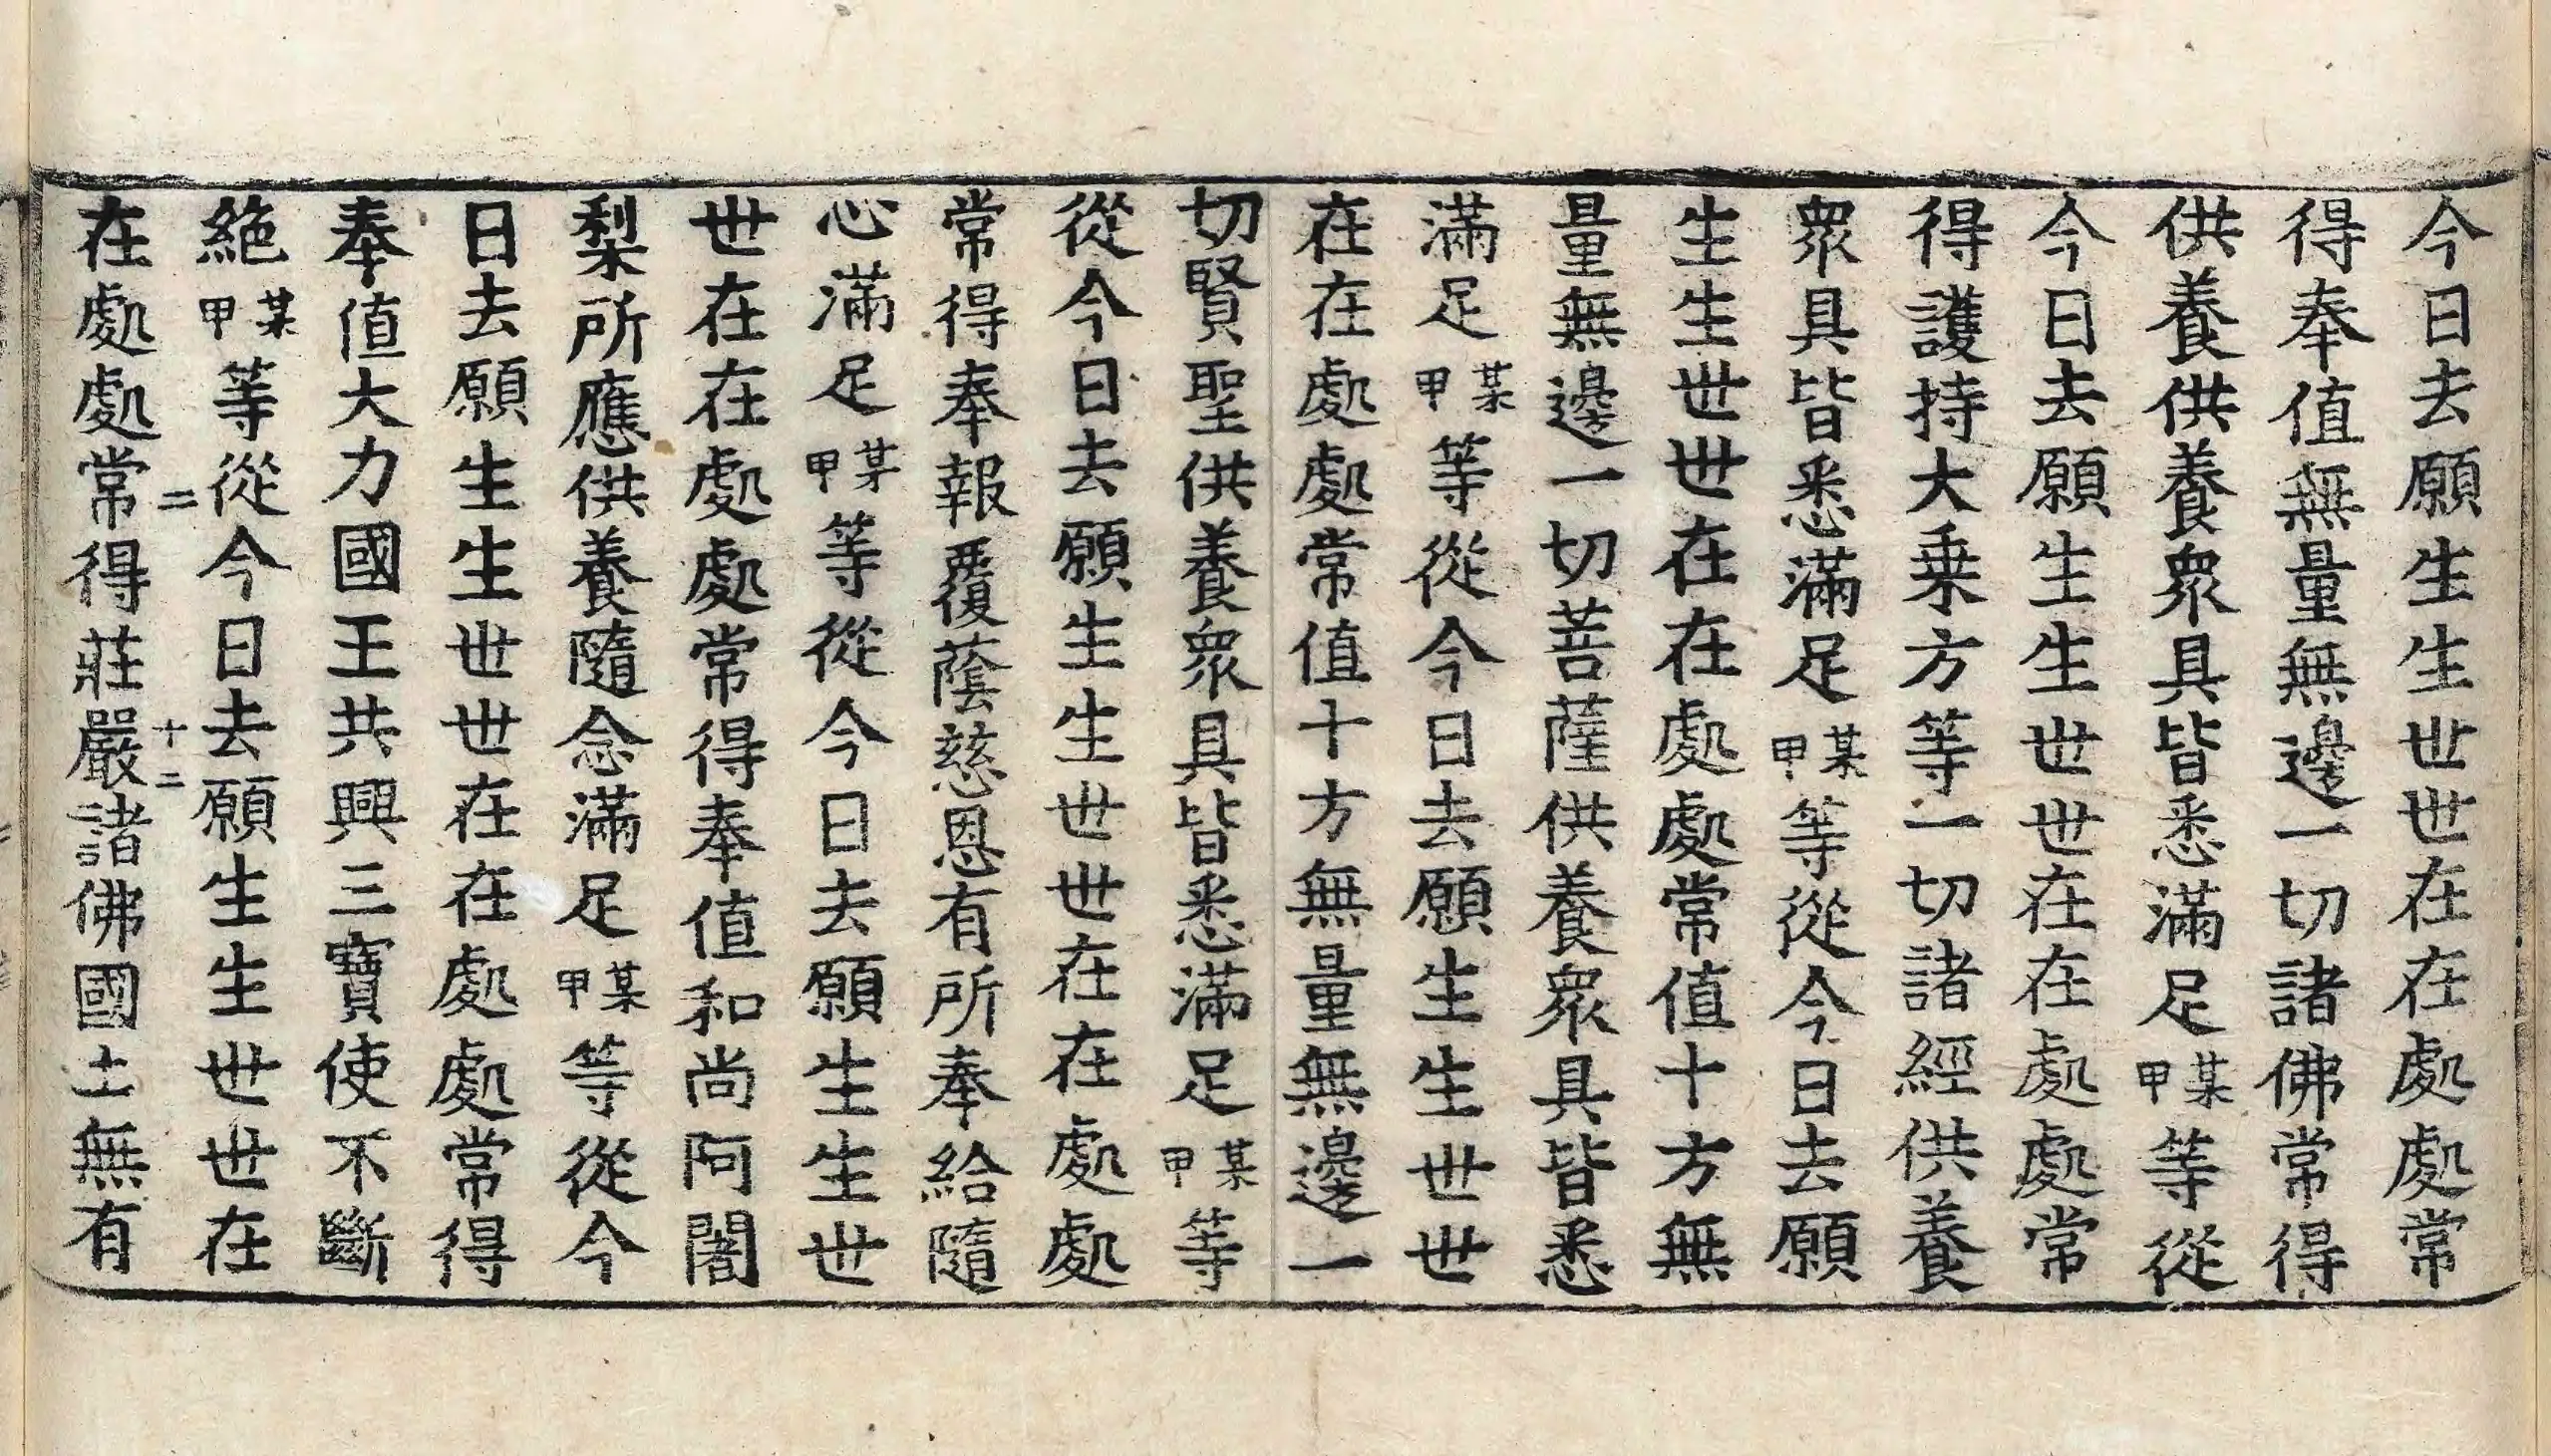 今日去願生生世世在在處處常
得奉值無量無邊一切諸佛常得
供養供養眾具皆悉滿足某甲等從
今日去願生生世世在在處處常
得護持大乗方等一切諸經供養
眾具皆悉滿足某甲等從今日去願
生生世世在在處處常值十方無
量無邊一切菩薩供養眾具皆悉
滿足某甲等從今日去願生生世世
在在處處常值十方無量無邊一
切賢聖供養眾具皆悉滿足某甲等
從今日去願生生世世在在處處
常得奉報覆蔭慈恩有所奉給隨
心滿足某甲等從今日去願生生世
世在在處處常得奉值和尚阿闍
梨所應供養隨念滿足某甲等從今
日去願生生世世在在處處常得
奉值大力國王共興三寶使不斷
絕某甲等從今日去願生生世世在
二 十二
在處處常得莊嚴諸佛國土無有